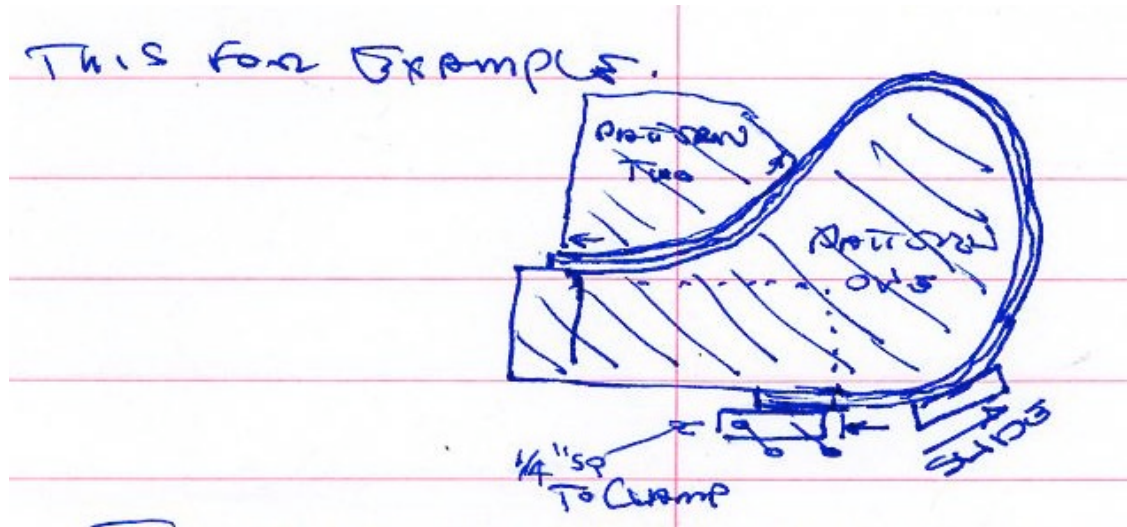 THIS FOR EXAMPLE.
PATTERN
TWO
PATTERN
ONE
SLIDE
1/4" SQ
TO CLAMP